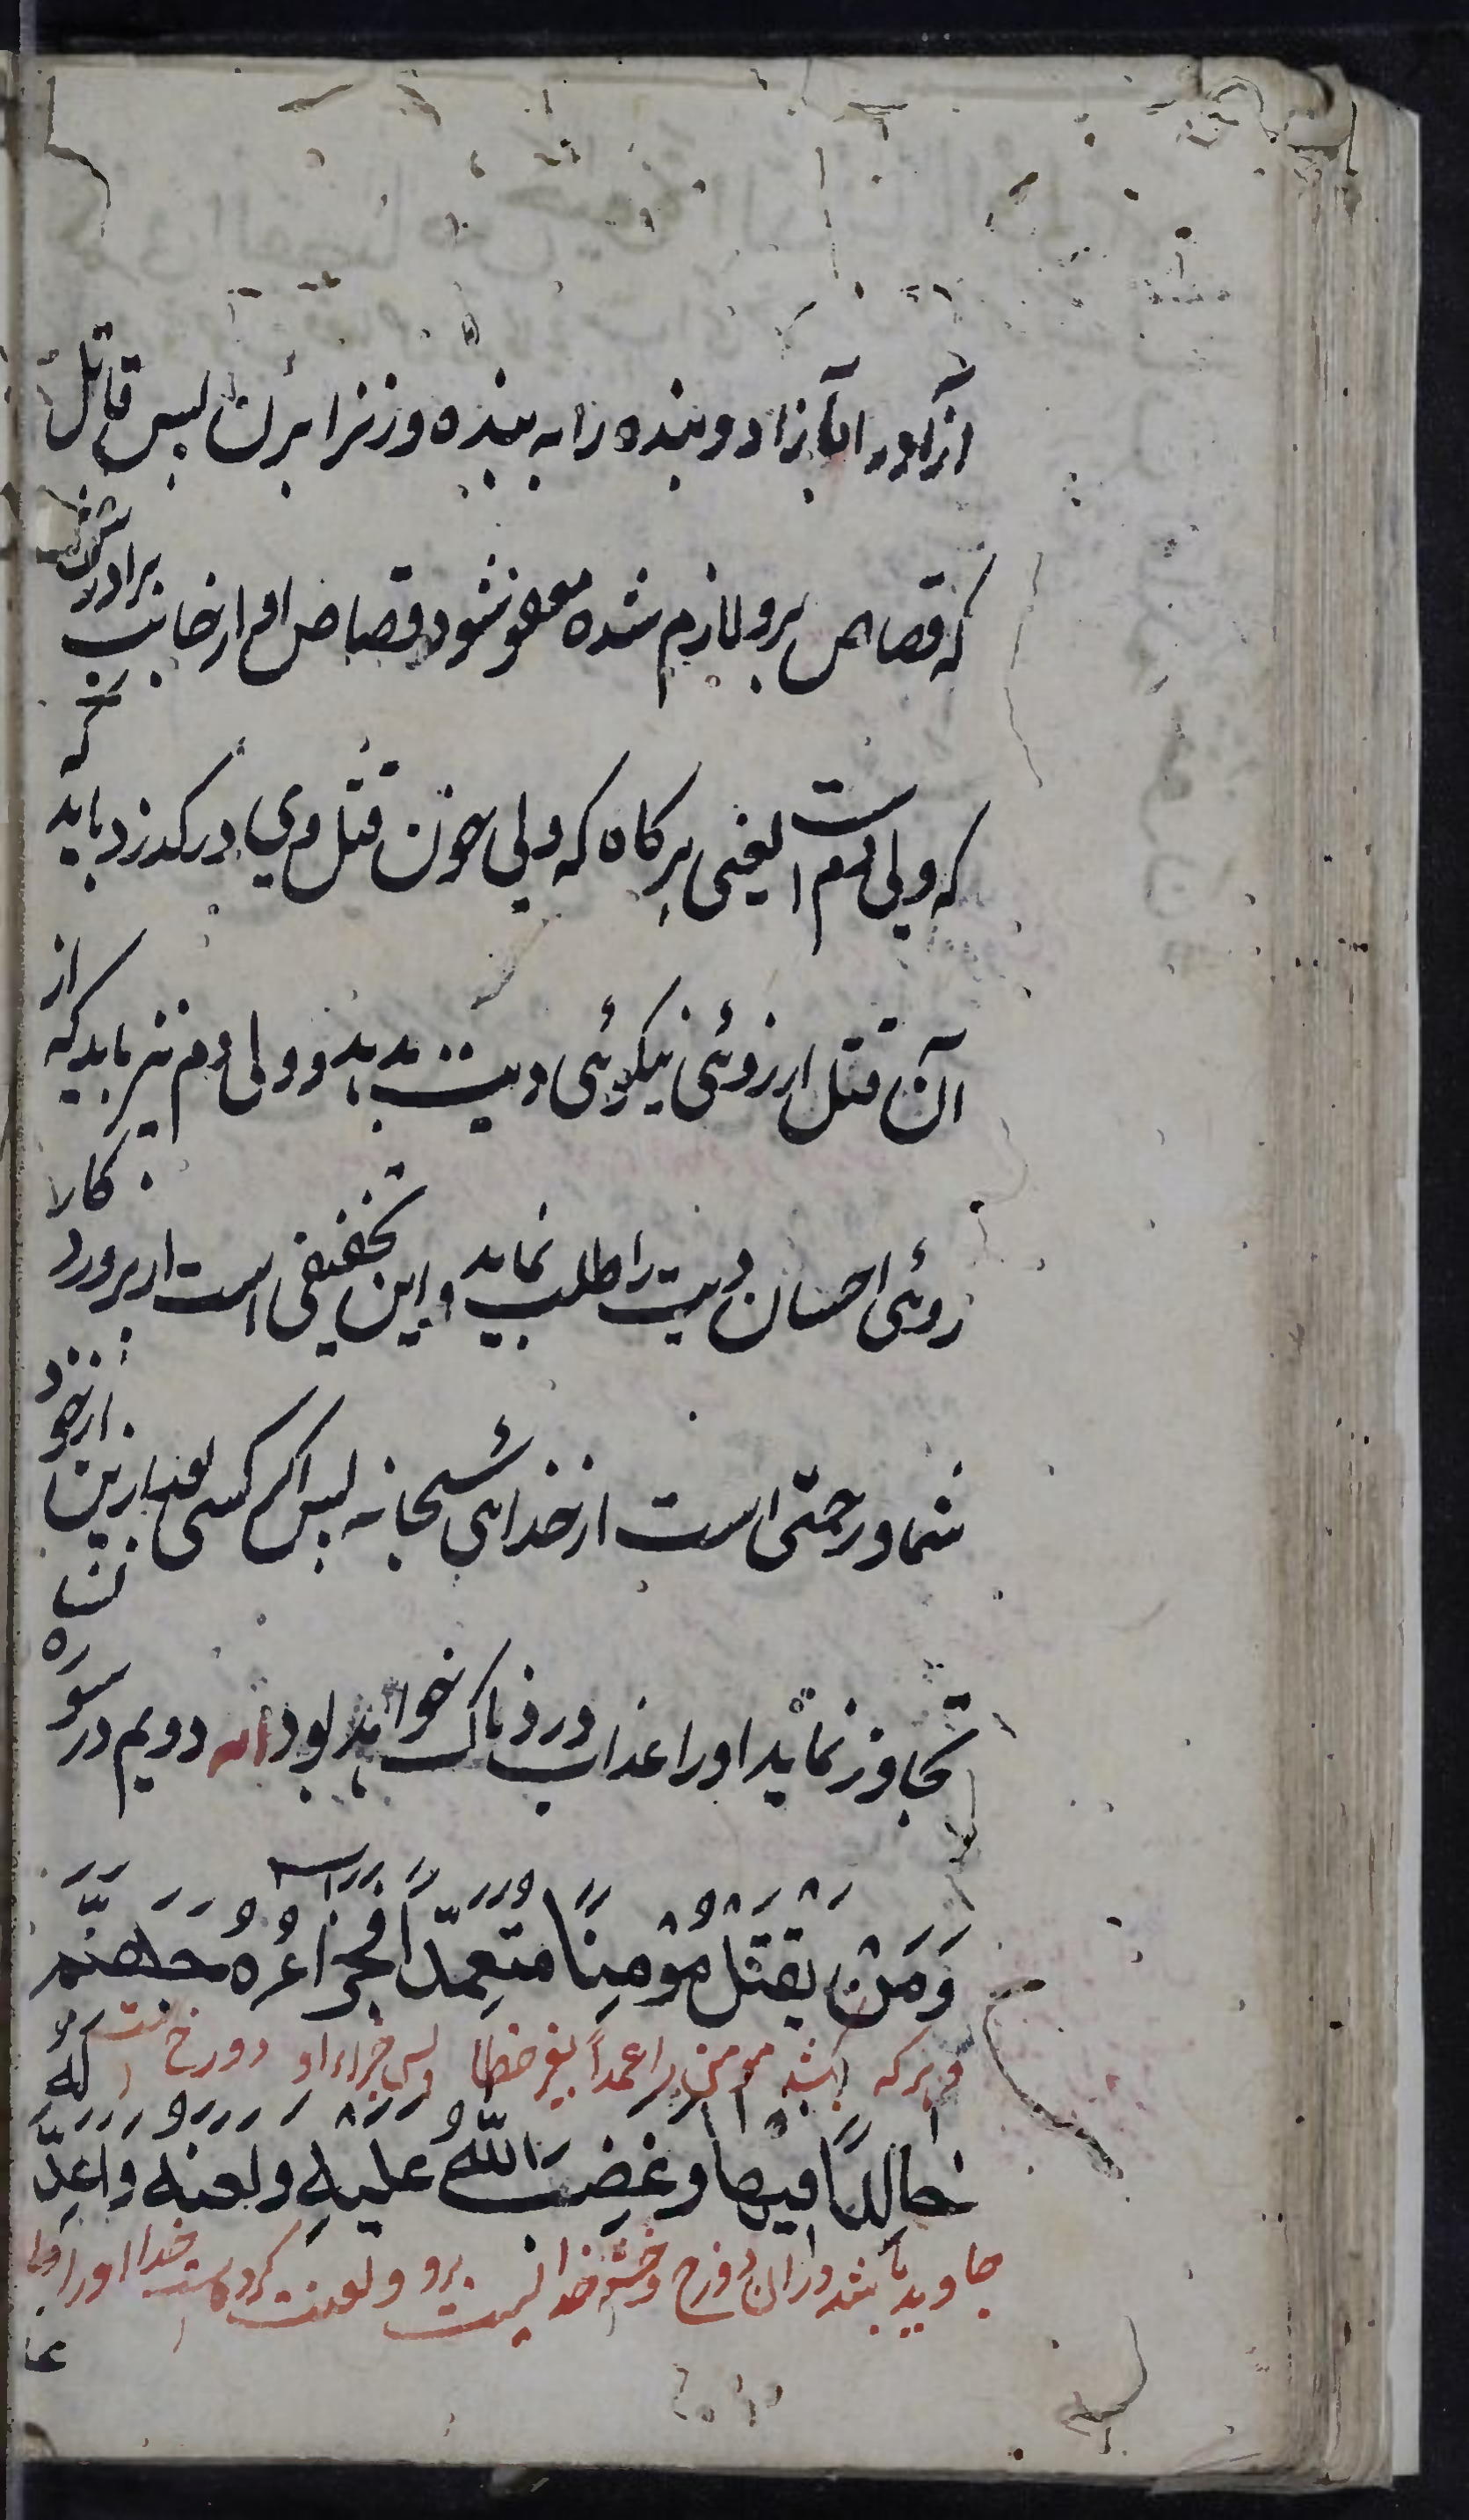 ازاد را بآزاد و بنده را به بنده و زنرا بزن پس قاتل
که قصاص برو لازم شده معفو شود قصاص او از جانب برادرش
که ولی دم است یعنی هرکاه که ولی خون قتل وی درکذرد باید که
آن قتل از روئی نیکوئی دیت بدهد و ولی دم نیز باید که از
روئی احسان دیت را طلب نماید و این تخفیفی است از پروردکار
شما و رحمتی است از خدای سبحانه پس اکر کسی بعد ازین از خود
تجاوز نماید او را عذاب دردناک خواهد بود آیه دویم در سوره نسا
وَمَنْ یَقتُل مُؤْمِنًا مُتَعمِّدًا فَجَزاءُهُ جَهَنَّمُ
و هرکه بکشد مومن را عمداً بغیر خطا پس جزاء او دوزخ است
خالِدًا فیها وَغَضِبَ اللّهُ عَلَیهِ وَلَعَنَهُ وَاَعَدَّ لَهُ
جاوید باشد در ان دوزخ و خشم خدا است برو و لعنت کرده است خدا او را
عذا